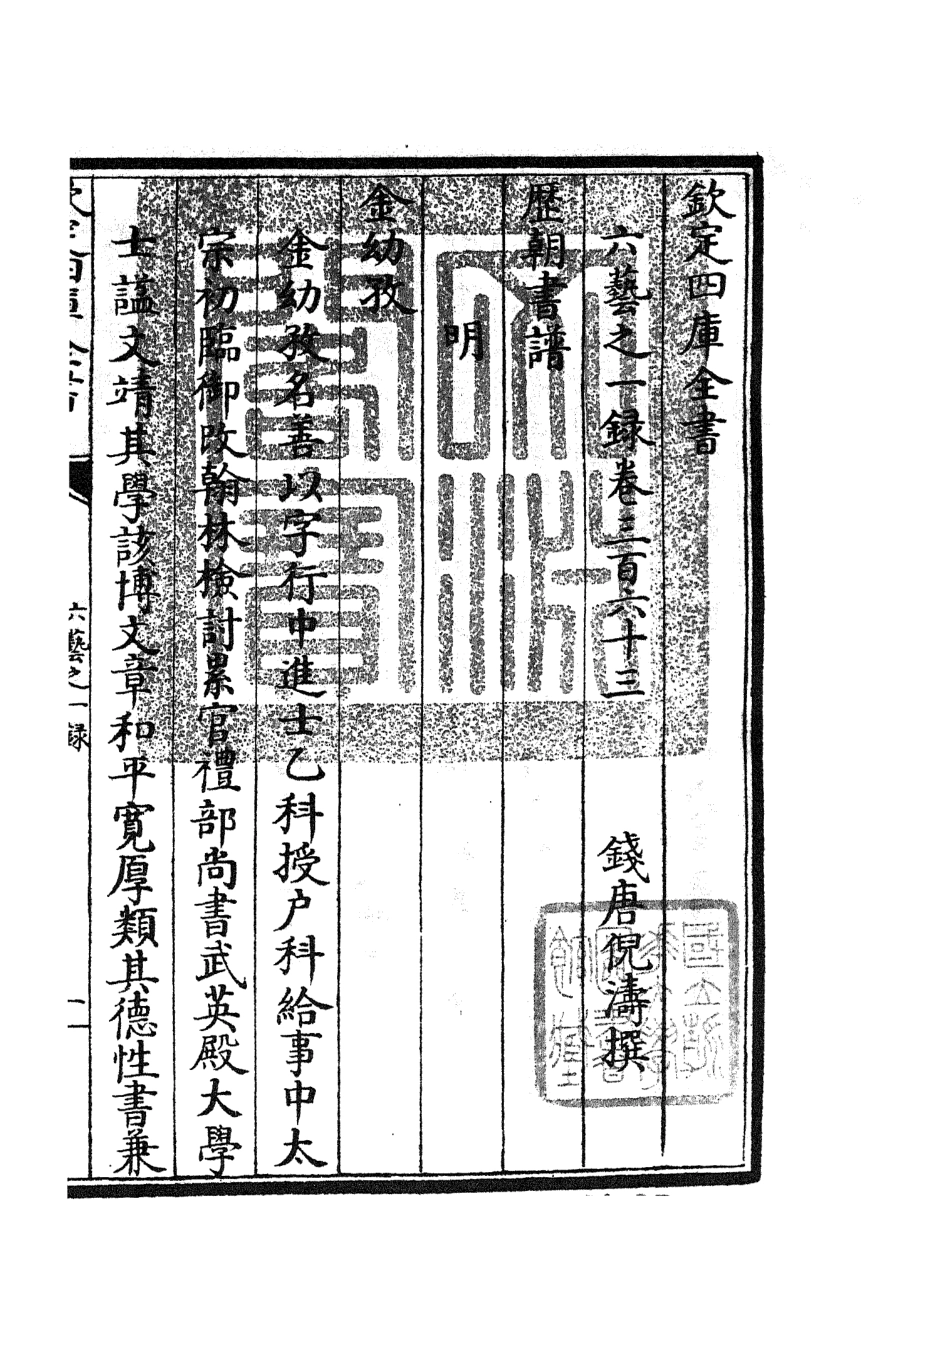 欽定四庫全書
六藝之一録卷三百六十三
錢唐倪濤撰
歴朝書譜
明
金幼孜
金幼孜名善以字行中進士乙科授户科給事中太
宗初臨御改翰林檢討累官禮部尚書武英殿大學
士諡文靖其學該博文章和平寛厚類其德性書兼
欽定四庫全書
六藝之一録
一